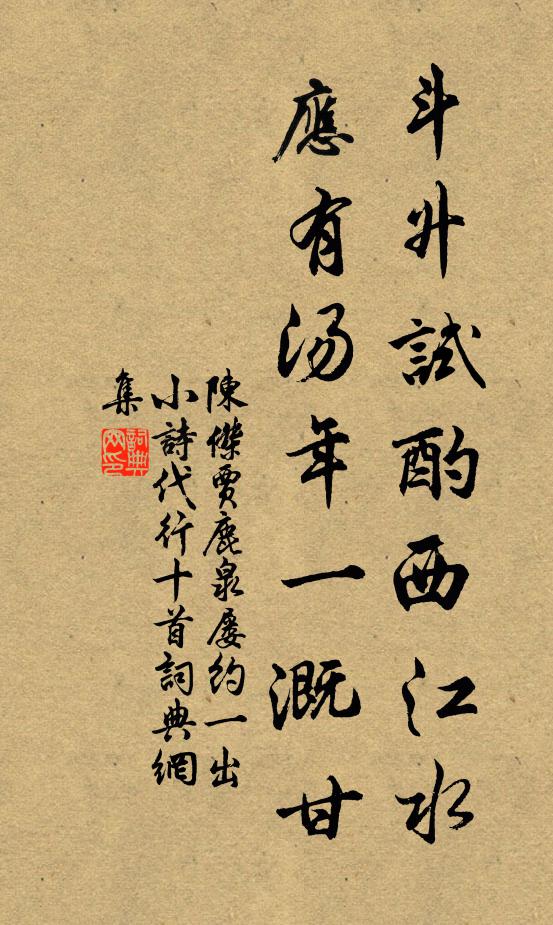 斗升試酌西江水
應有汤年一溉甘
陳傑賈鹿泉屡約一出
小詩代行十首詞典網
集
詞典
网印